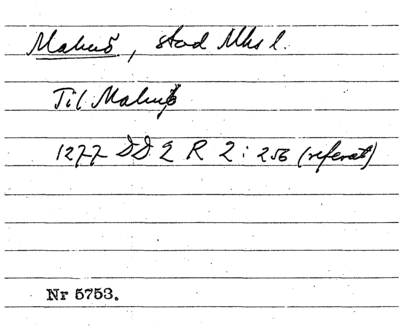 Malmö, stad Mks l.
Til Malmø
1277 DD 2 R 2:256 (referat)
Nr 5753.